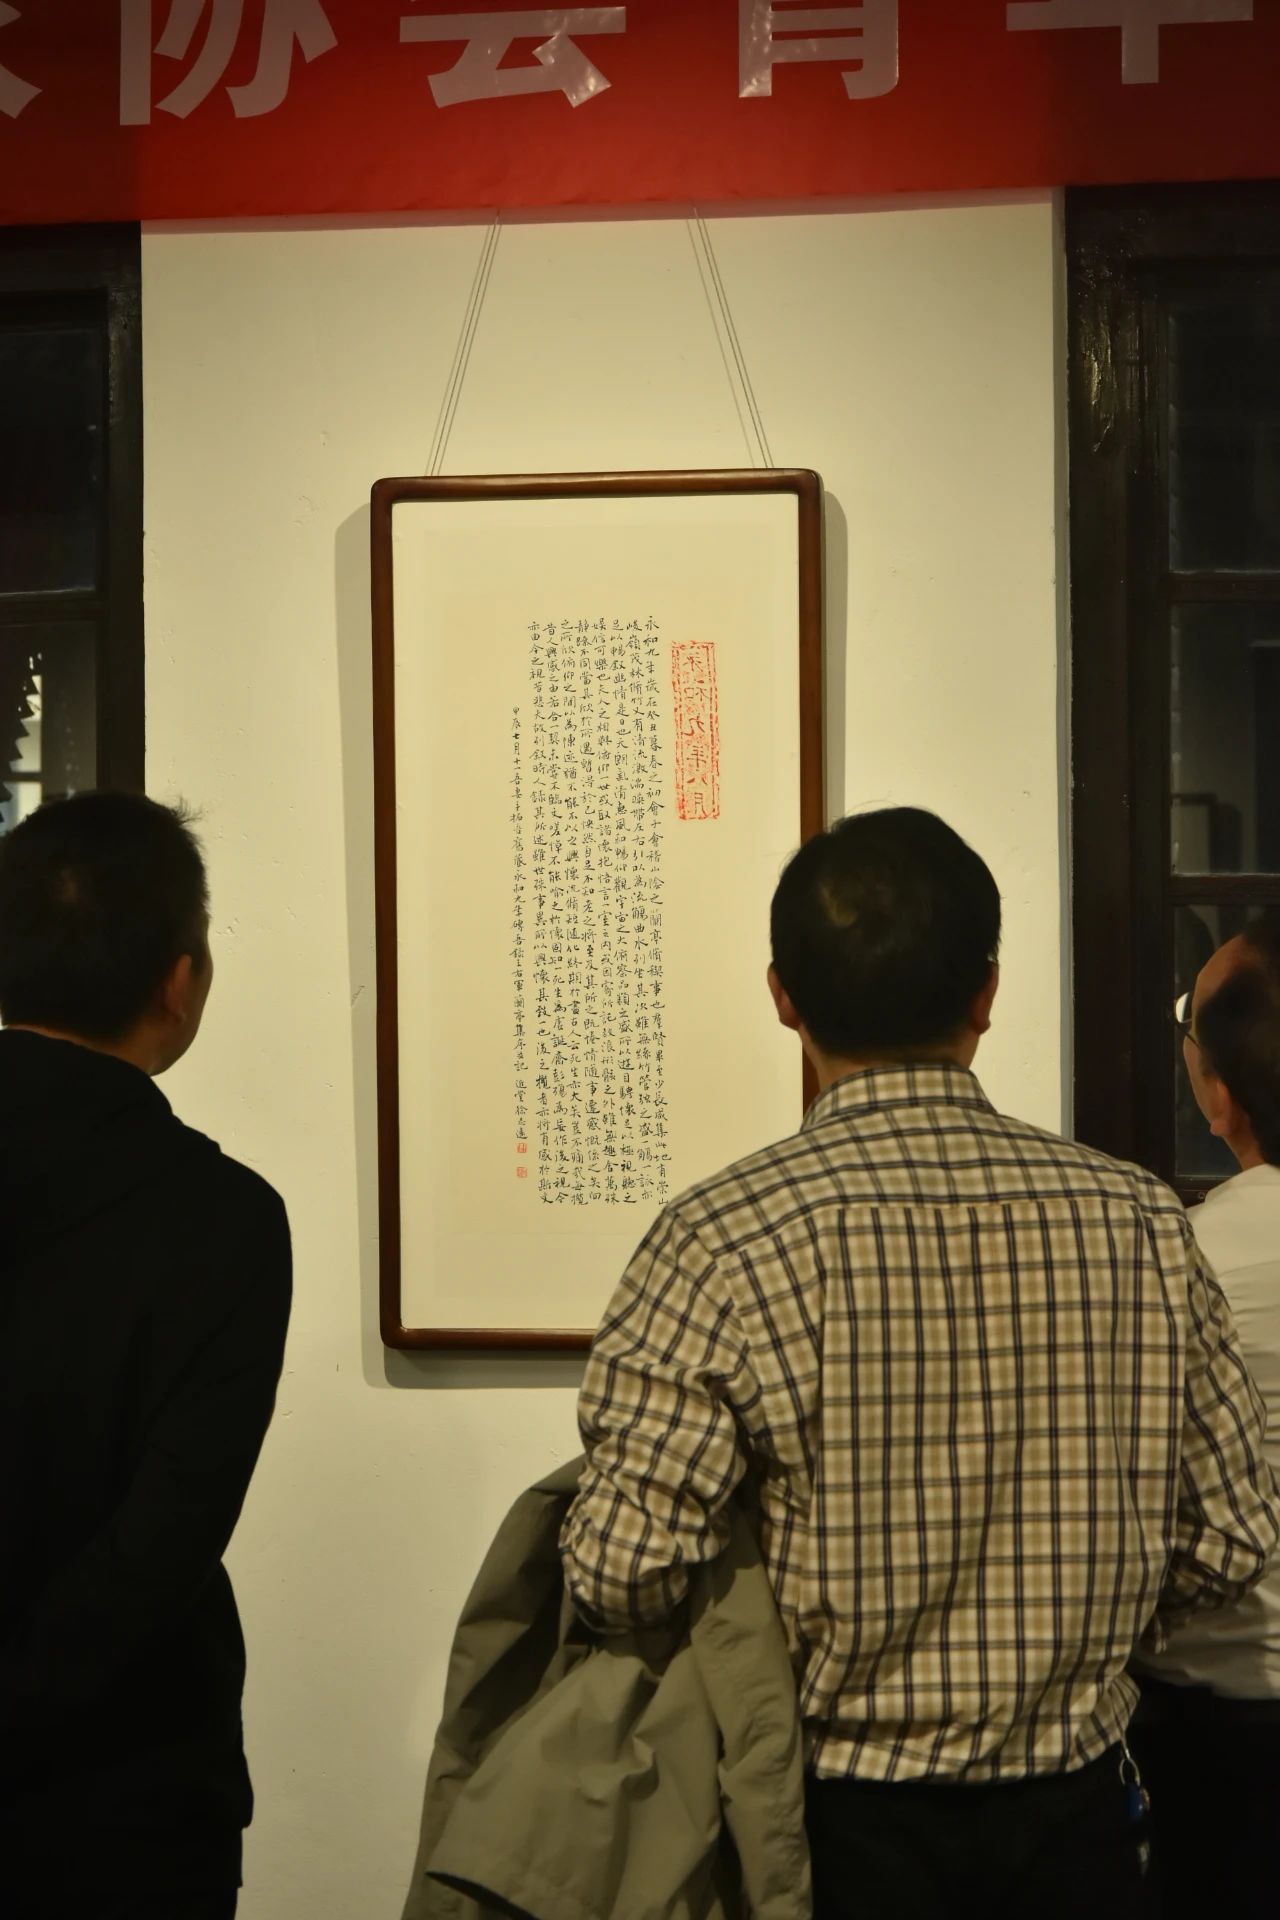 协会青年
永和九年八月
永和九年歲在癸丑暮春之初會于會稽山陰之蘭亭脩禊事也羣賢畢至少長咸集此地有崇山
峻嶺茂林脩竹又有清流激湍暎帶左右引以為流觴曲水列坐其次雖無絲竹管弦之盛一觴一詠亦
足以暢敘幽情是日也天朗氣清惠風和暢仰觀宇宙之大俯察品類之盛所以遊目騁懷足以極視聽之
娛信可樂也夫人之相與俯仰一世或取諸懷抱悟言一室之內或因寄所託放浪形骸之外雖無趣舍萬殊
靜躁不同當其欣於所遇蹔得於己怏然自足不知老之將至及其所之既惓情隨事遷感慨係之矣向
之所欣俯仰之間以為陳迹猶不能不以之興懷況脩短隨化終期於盡古人云死生亦大矣豈不痛哉每攬
昔人興感之由若合一契未嘗不臨文嗟悼不能喻之於懷固知一死生為虛誕齊彭殤為妄作後之視今
亦由今之視昔悲夫故列敘時人錄其所述雖世殊事異所以興懷其致一也後之攬者亦將有感於斯文
甲辰七月十一吾妻手拓吾舊藏永和九年磚吾錄王右軍蘭亭集序並記 近堂徐志遠